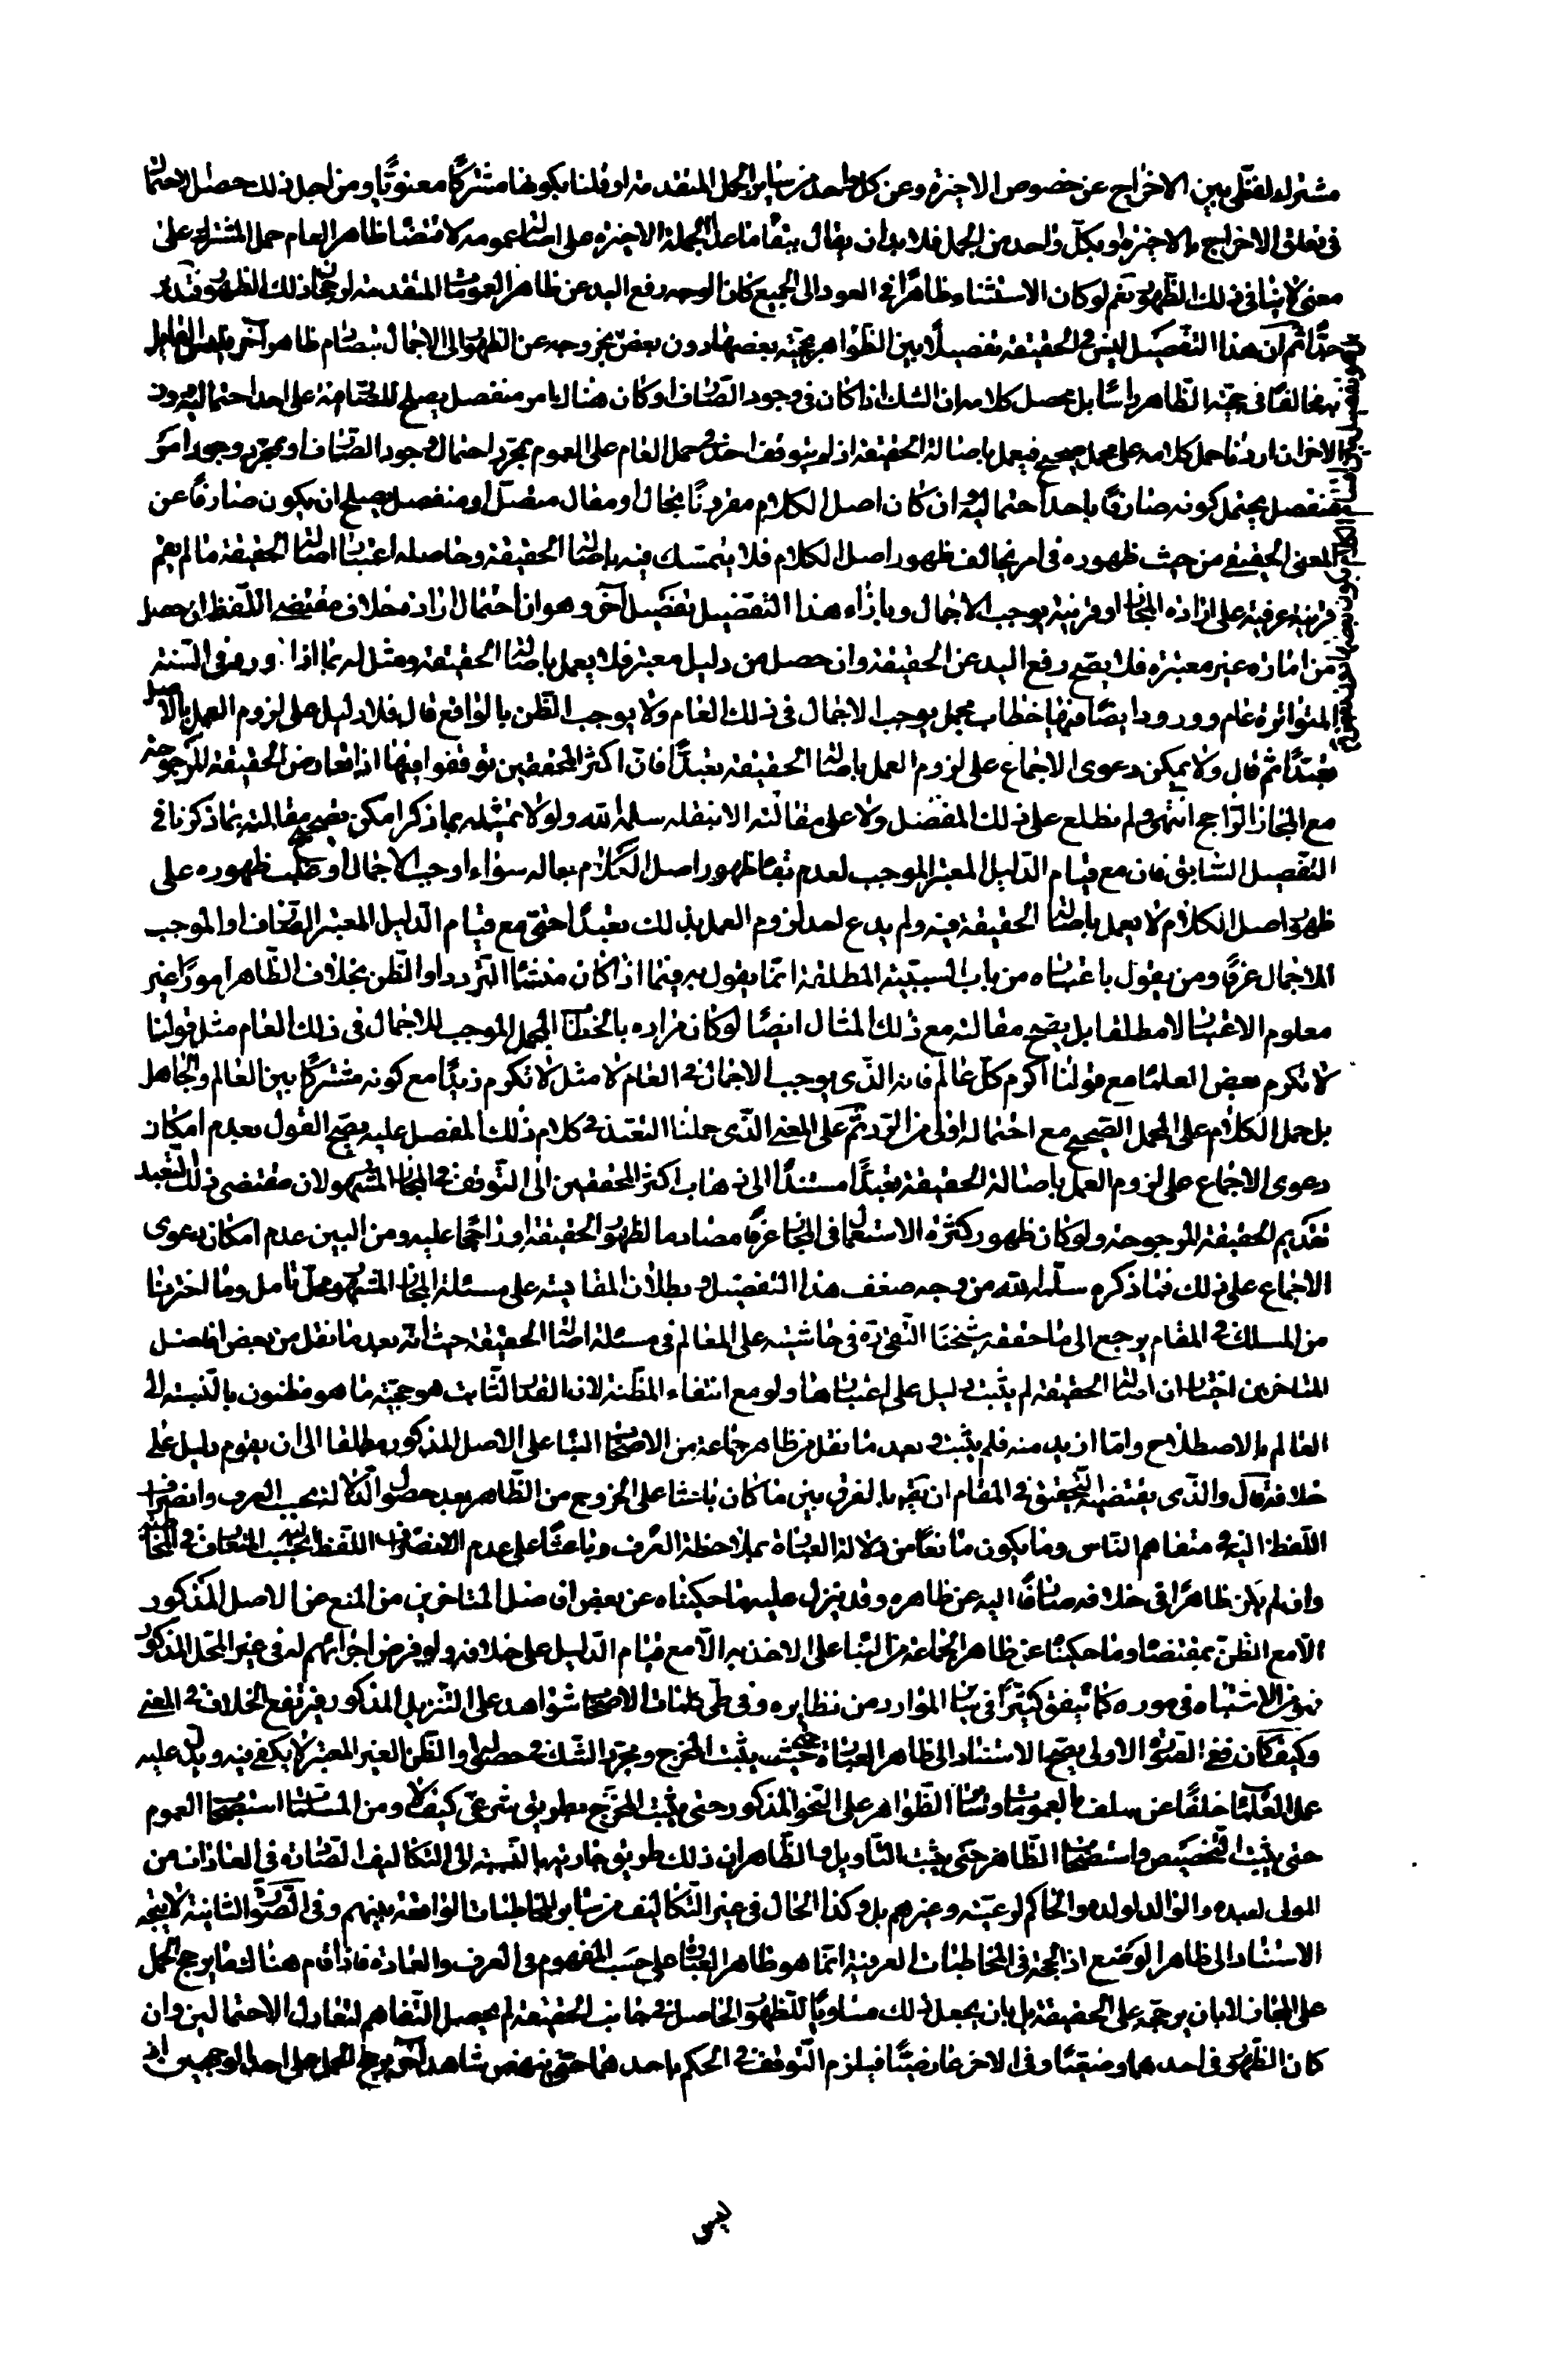 مشتركا لفظيّا بين الاخراج عن خصوص الاخيرة وعن كل واحد من سائر الجمل المتقدمة او قلنا بكونها مشتركا معنويّا ومن اجل ذلك حصل الاحتمال
فى تعلق الاخراج بالاخيرة او بكلّ واحد من الجمل فلا بد ان يقال ببقاء ما عدا الجملة الاخيرة على اصالة عمومه لا قتضاء ظاهر العام حمل المشترك على
معنى لا ينافى ذلك الظّهور نعم لو كان الاستثناء ظاهرًا فى العود الى الجميع كان الوجه رفع اليد عن ظاهر العمومات المتقدمة لرجحان ذلك الظهور فتدبّر
جدّا ثم ان هذا التفصيل ليس فى الحقيقة تفصيلًا بين الظّواهر بحجيّة بعضها دون بعض بخروجه عن الظهور الى الاجمال بتصادم ظاهر آخر
مخالفا فى حجيّة الظّاهر راسًا بل محصل كلامه ان الشك اذا كان فى وجود الصّارف او كان هناك امر منفصل يصلح للصّارفيّة على احد احتماليه دون
الاخر ان اردنا حمل كلامه على محمل صحيح فيعمل باصالة الحقيقة اذ لم يتوقف احد فى حمل العام على العموم بمجرّد احتمال وجود الصّارف او بمجرّد وجود امر
منفصل يحتمل كونه صارفًا باحد احتماليه وان كان اصل الكلام مقرونًا بحال او مقال متصل او منفصل يصلح ان يكون صارفًا عن
المعنى الحقيقى من حيث ظهوره فى امر يخالف ظهور اصل الكلام فلا يتمسك فيه باصالة الحقيقة وحاصله اعتبار اصالة الحقيقة ما لم يقم
قرينة عرفية على ارادة المجاز او قرينة يوجب الاجمال وبازاء هذا التفصيل تفصيل آخر وهو ان احتمال ارادة خلاف مقتضى اللّفظ ان حصل
من امارة غير معتبرة فلا يصح رفع اليد عن الحقيقة وان حصل من دليل معتبر فلا يعمل باصالة الحقيقة ومثل له بما اذا ورد فى السّنة
المتواترة عام وورد ايضًا فيها خطاب مجمل يوجب الاجمال فى ذلك العام ولا يوجب الظّن بالواقع قال فلا دليل على لزوم العمل بالاصل
تعبّدًا ثم قال ولا يمكن دعوى الاجماع على لزوم العمل باصالة الحقيقة تعبدًا فان اكثر المحققين توقفوا فيما اذا تعارض الحقيقة المرجوحة
مع المجاز الراجح انتهى ولم نطلع على ذلك المفصل ولا على مقالته الا بنقله سلمه الله ولولا تمثيله بما ذكر امكن تصحيح مقالته بما ذكرنا فى
التفصيل السّابق فان مع قيام الدّليل المعتبر الموجب لعدم بقاء ظهور اصل الكلام بحاله سواء اوجب الاجمال او ظهوره على
ظهور اصل الكلام لا يعمل باصالة الحقيقة فيه ولم يدع احد لزوم العمل بذلك تعبدًا حتى مع قيام الدّليل المعتبر الصّارف او الموجب
للاجمال عرفًا ومن يقول باعتباره من باب السببيّة المطلقة انّما يقول به فيما اذا كان منشأ التردد او الظّن بخلاف الظّاهر امورًا غير
معلوم الاعتبار لا مطلقا بل يصح مقالته مع ذلك المثال ايضًا لو كان مراده بالخطاب المجمل الموجب للاجمال فى ذلك العام مثل قولنا
لا تكرم بعض العلماء مع قولنا اكرم كلّ عالم فانه الذّى يوجب الاجمال فى العام لا مثل لا تكرم زيدًا مع كونه مشتركًا بين العالم والجاهل
بل حمل الكلام على المحمل الصّحيح مع احتماله اولى من الرد ثم على المعنى الذّى حملنا التعبّد فى كلام ذلك المفصل عليه يصحّ القول بعدم امكان
دعوى الاجماع على لزوم العمل باصالة الحقيقة تعبدًا مستندًا الى ذهاب اكثر المحققين الى التّوقف فى المجاز المشهور لان مقتضى ذلك التّعبد
تقديم الحقيقة المرجوحة ولو كان ظهور كثرة الاستعمال فى المجاز عرفًا مصادما لظهور الحقيقة او راجحًا عليه ومن البين عدم امكان دعوى
الاجماع على ذلك فما ذكره سلّمه الله من وجه ضعف هذا التفصيل وبطلان المقايسة على مسئلة المجاز المشهور محلّ تامل وما اخترنا
من المسلك فى المقام يرجع الى ما حققه شيخنا التّقى ره فى حاشيته على المعالم فى مسئلة اصالة الحقيقة حيث انّه بعد ما نقل من بعض افاضل
المتاخرين اختيار ان اصالة الحقيقة لم يثبت دليل على اعتبارها ولو مع انتفاء المظنة لان القدر الثّابت هو حجيّة ما هو مظنون بالنّسبة الى
العالم بالاصطلاح وامّا ازيد منه فلم يثبت وبعد ما نقل من ظاهر جماعة من الاصحاب البناء على الاصل المذكور مطلقا الى ان يقوم دليل على
خلافه قال والذّى يقتضيه التّحقيق فى المقام ان يقر بالفرق بين ما كان باعثا على الخروج من الظّاهر بعد حصول الدّلالة بحسب العرف وانصراف
اللّفظ اليه فى متفاهم النّاس وما يكون مانعًا من دلالة العبارة بملاحظة العرف وباعثًا على عدم الانصراف اللّفظ اليه بحسب المتعارف فى المخاطبات
وان لم يكن ظاهرًا فى خلافه صارفًا اليه عن ظاهره وقد ينزل عليه ما حكيناه عن بعض افاضل المتاخرين من المنع من الاصل المذكور
الّا مع الظّن بمقتضاه وما حكيناه عن ظاهر الجماعة من البناء على الاخذ به الّا مع قيام الدّليل على خلافه ولو فرض اجرائهم له فى غير المحلّ المذكور
فهو من الاشتباه فى مورده كما يتفق كثيرًا فى سائر الموارد من نظايره وفى طى كلمات الاصحاب شواهد على التّنزيل المذكور فيرتفع الخلاف فى المعنى
وكيف كان ففى الصّورة الاولى يصح الاستناد الى ظاهر العبارة حتى يثبت المخرج ومجرّد الشّك فى حصوله او الظّن الغير المعتبر لا يكفى فيه ويدل عليه
عمل العلماء خلفًا عن سلف بالعمومات وسائر الظّواهر على النحو المذكور حتى يثبت المخرج بطريق شرعى كيف لا ومن المسلمات استصحاب العموم
حتى يثبت التّخصيص واستصحاب الظّاهر حتّى يثبت التّاويل والظّاهر ان ذلك طريق جارية بالنّسبة الى التكاليف الصّادرة فى العادات من
المولى لعبده والوالد لولده والحاكم لرعيّته وغيرهم بل وكذا الحال فى غير التّكاليف من ساير المخاطبات الواقعة بينهم وفى الصّورة الثانية لا يتجه
الاستناد الى ظاهر الوضع اذ الحجّة فى المخاطبات العرفية انّما هو ظاهر العبارة على حسب المفهوم فى العرف والعادة فاذا قام هناك ما يرجح الحمل
على المجاز لا بان يرجحه على الحقيقة بل بان يجعل ذلك مساويًا للظهور الحاصل فى جانب الحقيقة لم يحصل التّفاهم لتعادل الاحتمالين وان
كان الظّهور فى احدهما وضعيًا وفى الاخر عارضيًّا فيلزم التّوقف فى الحكم باحدهما حتى ينهض شاهد آخر يرجح الحمل على احد الوجهين اذ
ليس